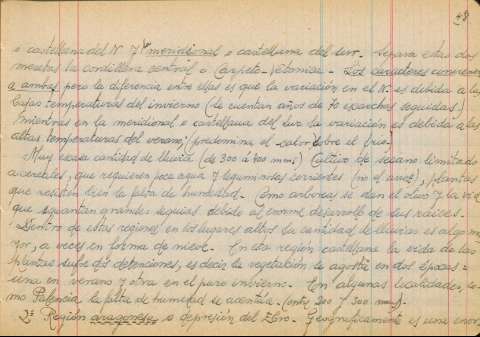 48.
o castellana del N. y meridional o castellana del sur. Separa estas dos
mesetas la cordillera central o Carpeto-Vetónica. Los caracteres convienen
a ambas pero la diferencia entre ellas es que la variación en el N. es debida a las
bajas temperaturas del invierno (se cuentan años de 70 escarchas seguidas)
Mientras en la meridional o castellana del sur la variación es debida a las
altas temperaturas del verano; (predomina el calor sobre el frío.
Muy escasa cantidad de lluvia (de 300 a 400 mm) Cultivo de secano limitado
a cereales, que requieren poca agua y leguminosas corrientes (no el arroz), plantas
que resisten bien la falta de humedad. Como arbóreas se dan el olivo y la vid
que aguantan grandes sequías debido al enorme desarrollo de sus raíces.
Dentro de estas regiones en los lugares altos la cantidad de lluvias es algo ma-
yor, a veces en forma de nieve. En esta región castellana la vida de las
plantas sufre dos detenciones, es decir la vegetación se agosta en dos épocas:
una en verano y otra en el puro invierno. En algunas localidades, co-
mo Palencia, la falta de humedad se acentúa. (entre 200 y 300 mm).
2ª Región aragonesa o depresión del Ebro. Geográficamente es una enor-